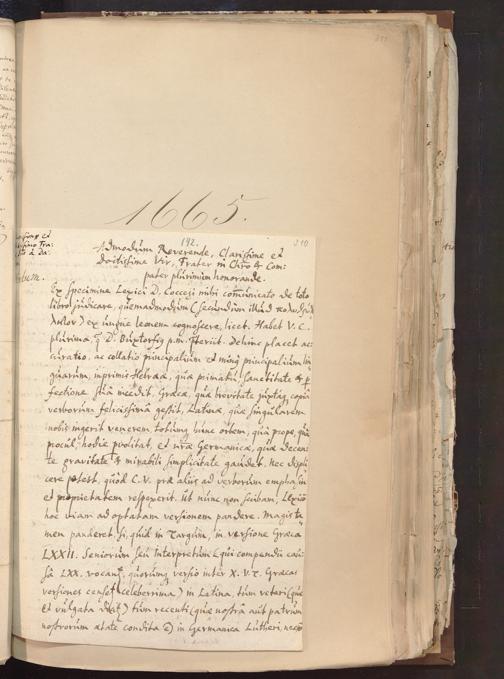 1665.
192.
Admodùm Reverende, Clarissime et
doctissime Vir, Frater in Chro & Com-
pater plurimùm honorande.
Ex specimine Lexici D. Cocceji mihi comũnicato de toto
libro judicare, quemadmodùm (secundùm illud
) ex ungue leonem cognoscere, licet. Habet V. C.
plurima, D. Buxtorfius p.m. Dehinc placet ac-
curatio, ac collatio principaliùm et minùs principaliùm lin-
guarùm, inprimis Hebraeae, quae primatùm, sanctitate &
fectione sùa incedit, Graecae, quae brevitate juxtaq copia
verborum felicissima gestit, Latinae, quae singùlarem
nobis ingerit venerem totùmq hùnc orbem, quà prope, quà
procùl, hodie pvolitat, et nrae Germanicae, quae decen-
te gravitate & mirabili simplicitate gaudet. Nec displi-
cere potest, quòd C. V. prae aliis ad verborùm emphasin
et proprietatem respexerit. Ut nùnc non scribam, Lexicon
hoc viam ad optatam versionem pandere. Magis ta-
men panderet, si, quid in Targùm, in versione Graeca
LXXII. Seniorùm seù Interpretùm (qùi compendii caù-
sâ LXX. vocant, qùorùmq versio inter X. V. T. Graecas
versiones censet celeberrima) in Latina, tùm veteri (quae
et vùlgata) tùm recenti (quae nostrâ aùt patrùm
nostrorùm aetate condita e) in Germanica Lùtheri, necnõ